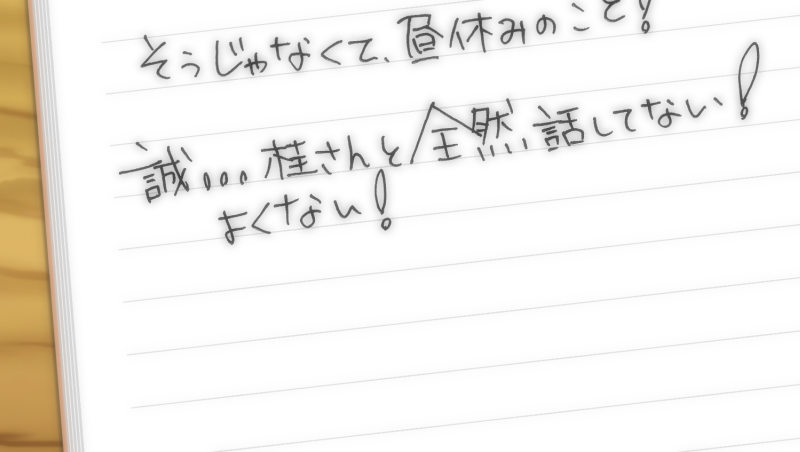 そうじゃなくて、昼休みのこと!
誠... 桂さんと全然話してない!
よくない!